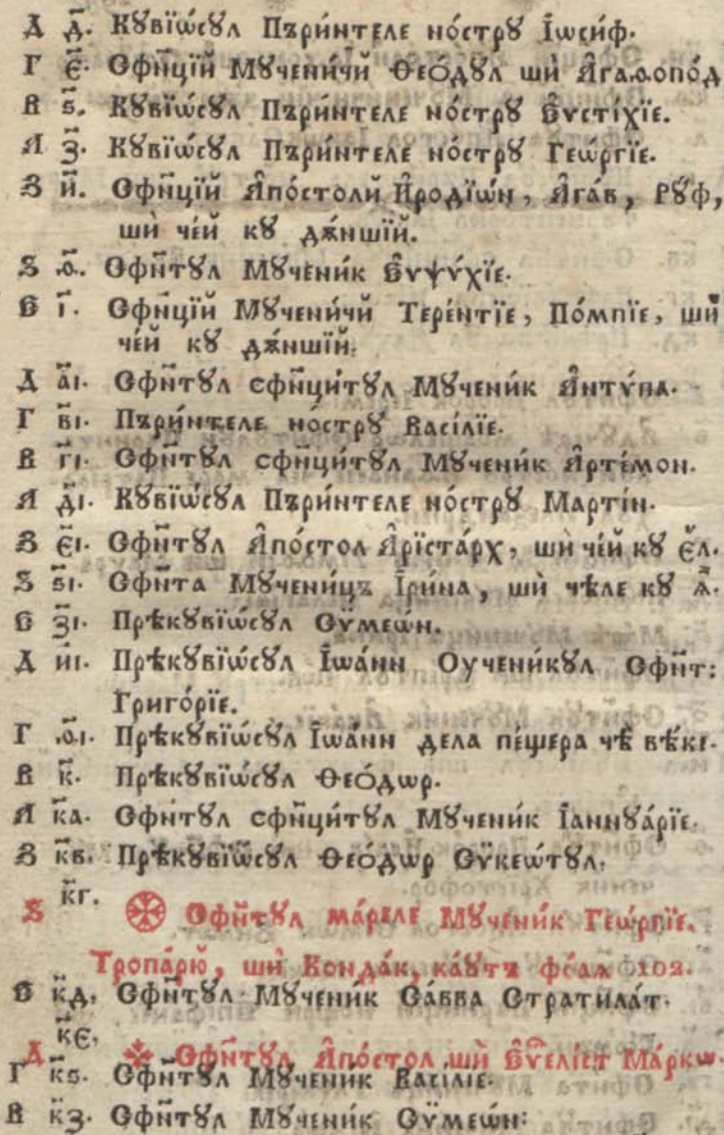 Д д҃. Кꙋвїѡ́сꙋл Пъри́нтеле но́стрꙋ Іѡси́ф.
Г є҃. Сфи́нцїй Мꙋчени́чй Ѳео́дꙋл шѝ Агаѳопо́д
В ѕ҃. Кꙋвїѡ́сꙋл Пъри́нтеле но́стрꙋ Єѵсті́хїе.
А з҃. Кꙋвїѡ́сꙋл Пъри́нтеле но́стрꙋ Геѡ́ргїе.
З и҃. Сфи́нцїй Апо́столй Иродїѡ́н, Ага́в, Рꙋ́ф,
шѝ че́й кꙋ дѫ́ншїй.
Ѕ ѳ҃. Сфи́нтꙋл Мꙋчени́к Єѵѱѵ́хїе.
Є і҃. Сфи́нцїй Мꙋчени́чй Тере́нтїе, По́мпїе, шѝ
че́й кꙋ дѫ́ншїй.
Д а҃і. Сфи́нтꙋл сфинци́тꙋл Мꙋчени́к Антѵ́па.
Г в҃і. Пъри́нтеле но́стрꙋ Васі́лїе.
В г҃і. Сфи́нтꙋл сфинци́тꙋл Мꙋчени́к Арте́мон.
А д҃і. Кꙋвїѡ́сꙋл Пъри́нтеле но́стрꙋ Марті́н.
З є҃і. Сфи́нтꙋл Апо́стол Арїста́рх, шѝ че́й кꙋ є́л.
Ѕ ѕ҃і. Сфи́нта Мꙋчени́цъ Іри́на, шѝ чѣ́ле кꙋ ѧ҆̀.
Є з҃і. Прѣкꙋвїѡ́сꙋл Сѷмеѡ́н.
Д и҃і. Прѣкꙋвїѡ́сꙋл Іѡа́нн Оученикꙋл Сфи́нт:
Григо́рїе.
Г ѳ҃і. Прѣкꙋвїѡ́сꙋл Іѡа́нн дела пе́щера чѣ вѣ́ке.
В к҃. Прѣкꙋвїѡ́сꙋл Ѳео́дѡр.
А к҃а. Сфи́нтꙋл сфинци́тꙋл Мꙋчени́к Іаннꙋа́рїе.
З к҃в. Прѣкꙋвїѡ́сꙋл Ѳео́дѡр Сѷкеѡ́тꙋл.
Ѕ к҃г. Сфи́нтꙋл ма́реле Мꙋчени́к Геѡ́ргїе.
Тропа́рю̆, шѝ Конда́к, ка́ꙋтъ фо́аѧ 102.
Є к҃д. Сфи́нтꙋл Мꙋчени́к Са́вва Стратила́т.
Д к҃є. Сфи́нтꙋл Апо́стол шѝ Єѵ҃елі́ст Ма́ркѡ.
Г к҃ѕ. Сфи́нтꙋл Мꙋчени́к Васі́лїе.
В к҃з. Сфи́нтꙋл Мꙋчени́к Сѷмеѡ́н: